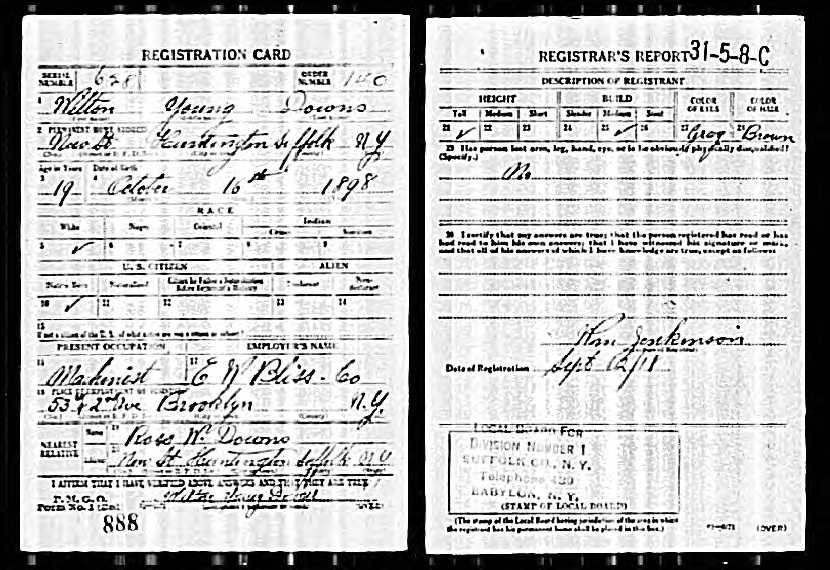 REGISTRATION CARD
SERIAL NUMBER 628 ORDER NUMBER 140
1 Wilton Young Downs
2 PERMANENT HOME ADDRESS
New St Huntington Suffolk N.Y.
Age in Years Date of Birth
3 19 4 October 16th 1898
RACE
White Negro Oriental Indian
5 ✓ 6 7 8 9
U. S. CITIZEN ALIEN
Native Born Naturalized
10 ✓ 11 12 13 14
15
PRESENT OCCUPATION EMPLOYER'S NAME
16 Machinist 17 E W Bliss - Co
18 PLACE OF EMPLOYMENT OR BUSINESS
53rd & 2nd Ave Brooklyn N.Y.
NEAREST RELATIVE Name 19 Ross W. Downs
Address 20 New St Huntington Suffolk N Y
I AFFIRM THAT I HAVE VERIFIED ABOVE ANSWERS AND THAT THEY ARE TRUE
P. M. G. O.
Form No. 1 Wilton Young Downs (OVER)
888
REGISTRAR'S REPORT 31-5-8-C
DESCRIPTION OF REGISTRANT
HEIGHT BUILD COLOR OF EYES COLOR OF HAIR
Tall Medium Short Slender Medium Stout
21 ✓ 22 23 24 25 ✓ 26 27 Gray 28 Brown
29 Has person lost arm, leg, hand, eye, or is he obviously physically disqualified?
(Specify.)
No
30 I certify that my answers are true; that the person registered has read or has
had read to him his own answers; that I have witnessed his signature or mark,
and that all of his answers of which I have knowledge are true, except as follows:
Wm Jenkinson
Date of Registration Sept 12/18
LOCAL BOARD FOR
DIVISION NUMBER 1
SUFFOLK CO., N. Y.
Telephone 430
BABYLON, N. Y.
(STAMP OF LOCAL BOARD)
(The stamp of the Local Board having jurisdiction of the area in which
the registrant has his permanent home shall be placed in this box.) (OVER)